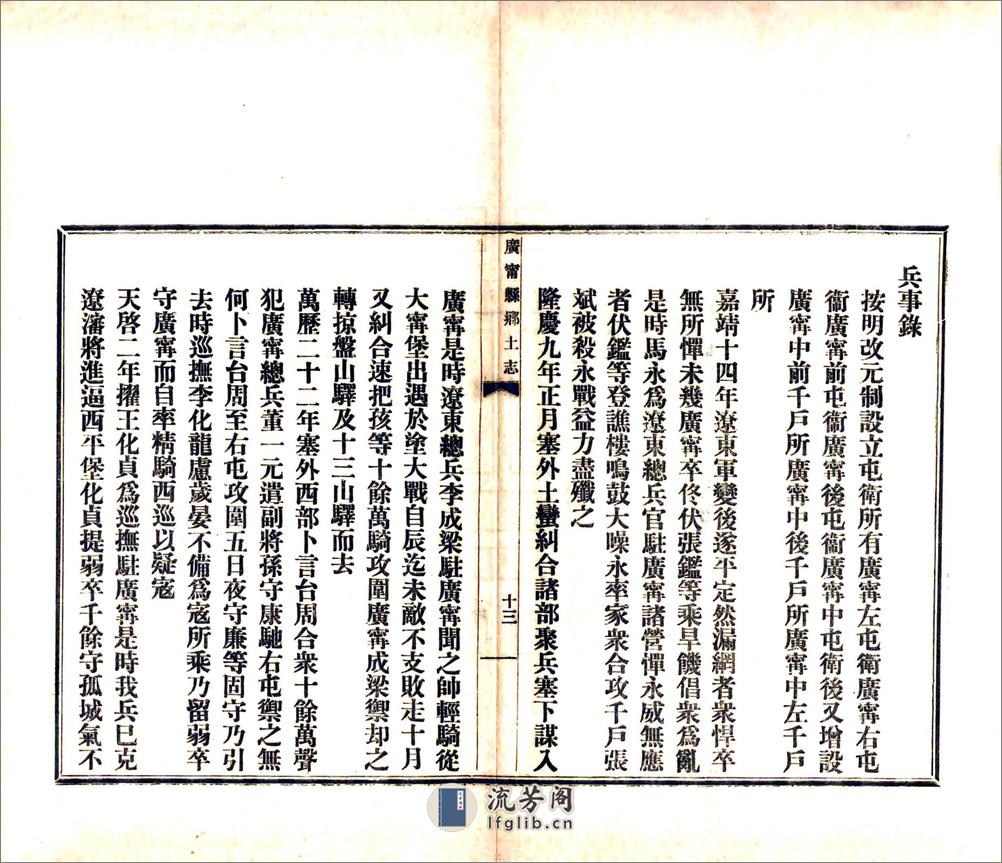 兵事錄
按明改元制設立屯衛所有廣甯左屯衛廣甯右屯
衞廣甯前屯衞廣甯後屯衞廣甯中屯衛後又增設
廣甯中前千戶所廣甯中後千戶所廣甯中左千戶
所
嘉靖十四年遼東軍變後遂平定然漏網者衆悍卒
無所憚未幾廣甯卒佟伏張鑑等乘旱饑倡衆爲亂
是時馬永爲遼東總兵官駐廣甯諸營憚永威無應
者伏鑑等登譙樓鳴鼓大噪永率家衆合攻千戶張
斌被殺永戰益力盡殲之
隆慶九年正月塞外土蠻糾合諸部聚兵塞下謀入
廣甯縣鄉土志
十三
廣甯是時遼東總兵李成梁駐廣甯聞之師輕騎從
大甯堡出遇於塗大戰自辰迄未敵不支敗走十月
又糾合速把孩等十餘萬騎攻圍廣甯成梁禦却之
轉掠盤山驛及十三山驛而去
萬歷二十二年塞外西部卜言台周合衆十餘萬聲
犯廣甯總兵董一元遣副將孫守廉馳右屯禦之無
何卜言台周至右屯攻圍五日夜守廉等固守乃引
去時巡撫李化龍慮歲晏不備爲寇所乘乃留弱卒
守廣甯而自率精騎西巡以疑寇
天啓二年擢王化貞爲巡撫駐廣甯是時我兵已克
遼瀋將進逼西平堡化貞提弱卒千餘守孤城氣不
流芳阁
lfglib.cn